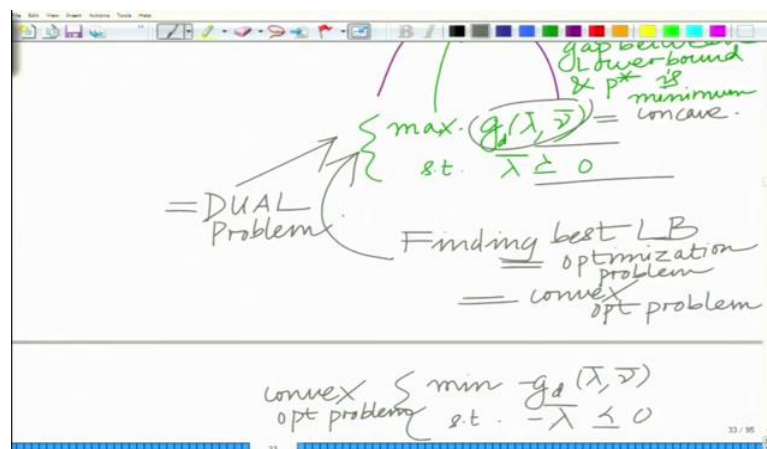 File Edit View Insert Actions Tools Help
B I
gap between
Lower bound
& p* is
minimum
max. g_d(λ̄, ν̄) = concave.
s.t. λ̄ ≽ 0
= DUAL
Problem.
Finding best LB
= optimization
problem
= convex
opt problem
convex
opt problem
min -g_d(λ̄, ν̄)
s.t. -λ̄ ≼ 0
33 / 95
33